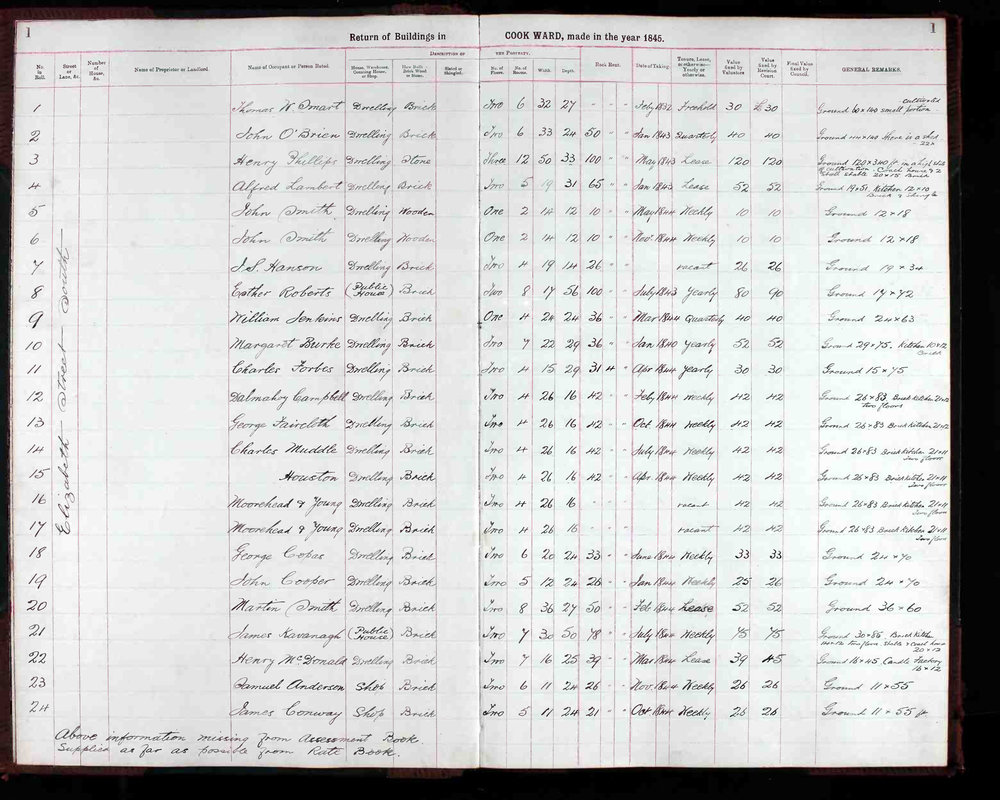 1
Return of Buildings in COOK WARD, made in the year 1845.
1
No. in Roll. Street or Lane, &c. Number of House, &c. Name of Proprietor or Landlord. Name of Occupant or Person Rated. House, Warehouse, Counting House, or Shop. Description of the Property. How Built—Brick Wood or Stone. Slated or Shingled. No. of Floors. No. of Rooms. Width. Depth. Rack Rent. Date of Taking. Tenure, Lease, or otherwise—Yearly or otherwise. Value fixed by Valuators Value fixed by Revision Court. Final Value fixed by Council. GENERAL REMARKS.
Elizabeth Street South
1 Thomas W Smart Dwelling Brick Two 6 32 27 - - - July 1832 Freehold 30 £30 Ground 60 x 140 small portion cultivated
2 John O'Brien Dwelling Brick Two 6 33 24 50 " " Jan 1843 Quarterly 40 40 Ground 44 x 140 there is a shed
3 Henry Phillips Dwelling Stone Three 12 50 33 100 " " May 1843 Lease 120 120 Ground 120 x 340 ft in a high state of cultivation. Coach house & 2 Stall stable 20 x 15 Brick
4 Alfred Lambert Dwelling Brick Two 5 19 31 65 " " Jan 1843 Lease 52 52 Ground 19 x 51. Kitchen 12 x 10 Brick & Shingle
5 John Smith Dwelling Wooden One 2 14 12 10 " " May 1844 Weekly 10 10 Ground 12 x 18
6 John Smith Dwelling Wooden One 2 14 12 10 " " Nov. 1844 Weekly 10 10 Ground 12 x 18
7 J. S. Hanson Dwelling Brick Two 4 19 14 26 " " vacant 26 26 Ground 19 x 34
8 Esther Roberts (Public House) Brick Two 8 17 56 100 - - July 1843 Yearly 80 90 Ground 17 x 72
9 William Jenkins Dwelling Brick One 4 24 24 36 " - Mar 1844 Quarterly 40 40 Ground 24 x 63
10 Margaret Burke Dwelling Brick Two 7 22 29 36 " - Jan 1840 Yearly 52 52 Ground 29 x 75. Kitchen 10 x 12 Brick
11 Charles Forbes Dwelling Brick Two 4 15 29 31 4 - Apr 1844 Yearly 30 30 Ground 15 x 75
12 Dalmahoy Campbell Dwelling Brick Two 4 26 16 42 - - July 1844 Weekly 42 42 Ground 26 x 83 Brick Kitchen two floors
13 George Faircloth Dwelling Brick Two 4 26 16 42 - - Oct 1844 Weekly 42 42 Ground 26 x 83 Brick Kitchen 21 x 12
14 Charles Muddle Dwelling Brick Two 4 26 16 42 - - July 1844 Weekly 42 42 Ground 26 x 83 Brick Kitchen 21 x 11 Two floors
15 Houston Dwelling Brick Two 4 26 16 42 - - Apr 1844 Weekly 42 42 Ground 26 x 83 Brick Kitchen 21 x 11 Two floors
16 Moorehead & Young Dwelling Brick Two 4 26 16 - - - vacant 42 42 Ground 26 x 83 Brick Kitchen 21 x 11 Two floors
17 Moorehead & Young Dwelling Brick Two 4 26 16 - - - vacant 42 42 Ground 26 x 83 Brick Kitchen 21 x 11 Two floors
18 George Copas Dwelling Brick Two 6 20 24 33 - - June 1844 Weekly 33 33 Ground 24 x 70
19 John Cooper Dwelling Brick Two 5 12 24 26 - - Jan 1844 Weekly 25 26 Ground 24 x 70
20 Martin Smith Dwelling Brick Two 8 36 27 50 - - Feb 1844 Lease 52 52 Ground 36 x 60
21 James Kavanagh (Public House) Brick Two 7 30 50 78 " - July 1844 Weekly 75 75 Ground 30 x 86 Brick Kitchen two floors, stable & Coach house 20 x 12
22 Henry McDonald Dwelling Brick Two 7 16 25 39 - - Mar 1844 Lease 39 45 Ground 16 x 45 Candle Factory 16 x 12
23 Samuel Anderson Shop Brick Two 6 11 24 26 - - Nov. 1844 Weekly 26 26 Ground 11 x 55
24 James Conway Shop Brick Two 5 11 24 21 " - Oct 1844 Weekly 26 26 Ground 11 x 55 ft
Above information missing from Assessment Book.
Supplied as far as possible from Rate Book.